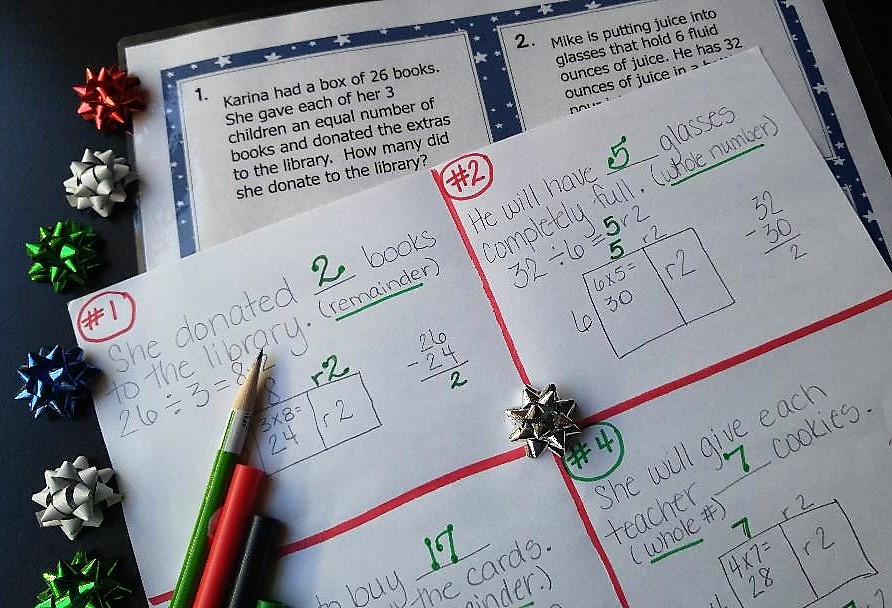 1. Karina had a box of 26 books.
She gave each of her 3
children an equal number of
books and donated the extras
to the library. How many did
she donate to the library?
2. Mike is putting juice into
glasses that hold 6 fluid
ounces of juice. He has 32
ounces of juice in a
#1
She donated 2 books
(remainder)
to the library.
26 ÷ 3 = 8
8 r2
3x8=
24
r2
26
- 24
2
#2
He will have 5 glasses
completely full. (whole number)
32 ÷ 6 = 5 r2
5 r2
6
6x5=
30
r2
32
- 30
2
to buy 17
the cards.
#4
She will give each
teacher 7 cookies.
(whole #)
7 r2
4x7=
28
r2